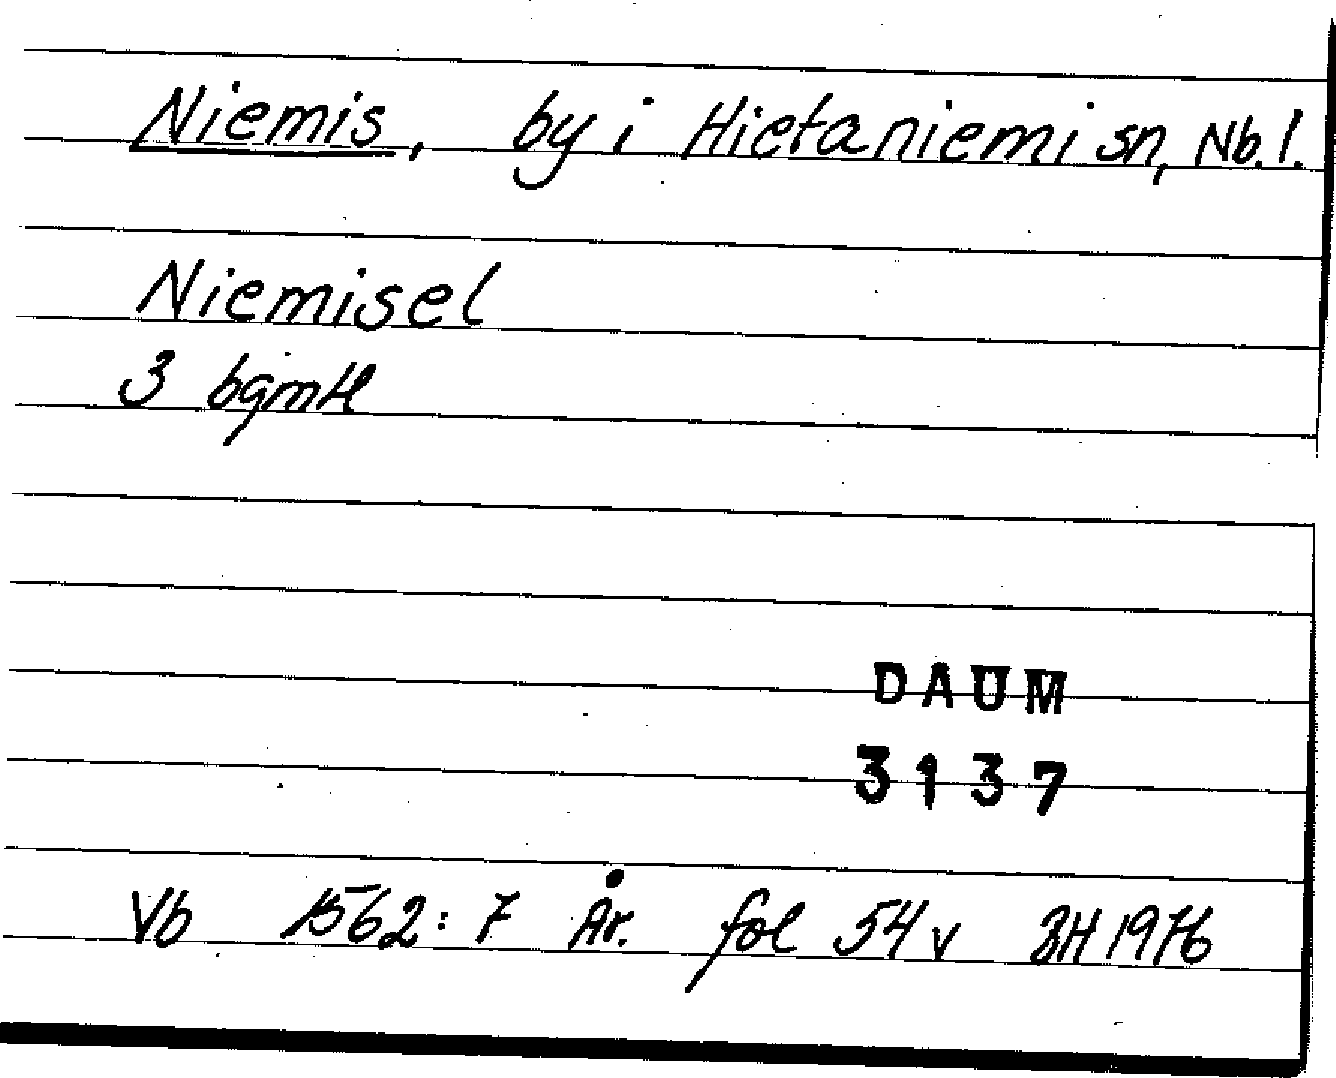 Niemis, by i Hietaniemi sn, Nb. l.
Niemisel
3 bgmtl
DAUM
3137
Vb 1562: 7 År. fol 54 v BH 1976